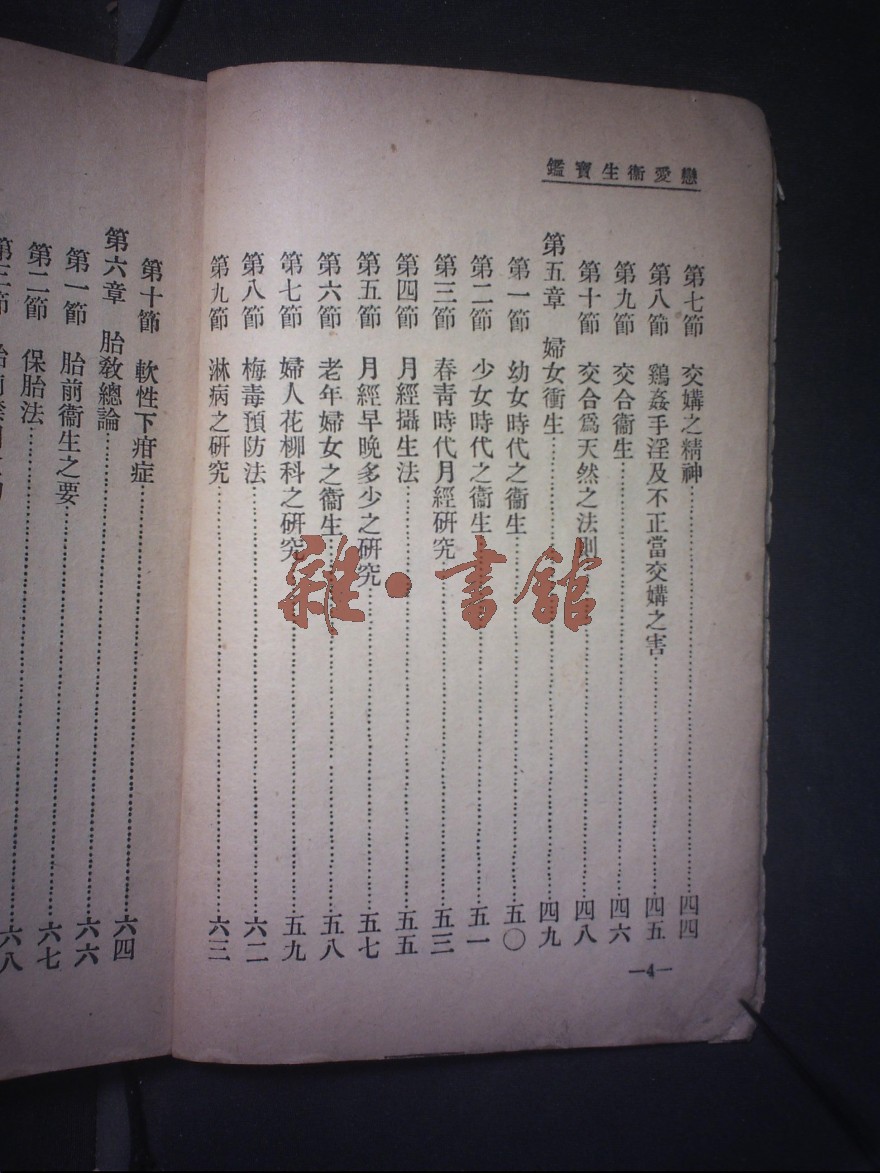 戀愛衞生寶鑑
第七節 交媾之精神 四四
第八節 鷄姦手淫及不正當交媾之害 四五
第九節 交合衞生 四六
第十節 交合爲天然之法則 四八
第五章 婦女衝生 四九
第一節 幼女時代之衞生 五〇
第二節 少女時代之衞生 五一
第三節 春靑時代月經硏究 五三
第四節 月經攝生法 五五
第五節 月經早晚多少之硏究 五七
第六節 老年婦女之衞生 五八
第七節 婦人花柳科之硏究 五九
第八節 梅毒預防法 六二
第九節 淋病之硏究 六三
—4—
第十節 軟性下疳症 六四
第六章 胎敎總論
第一節 胎前衞生之要 六六
第二節 保胎法 六七
第三節 六八
雜·書館